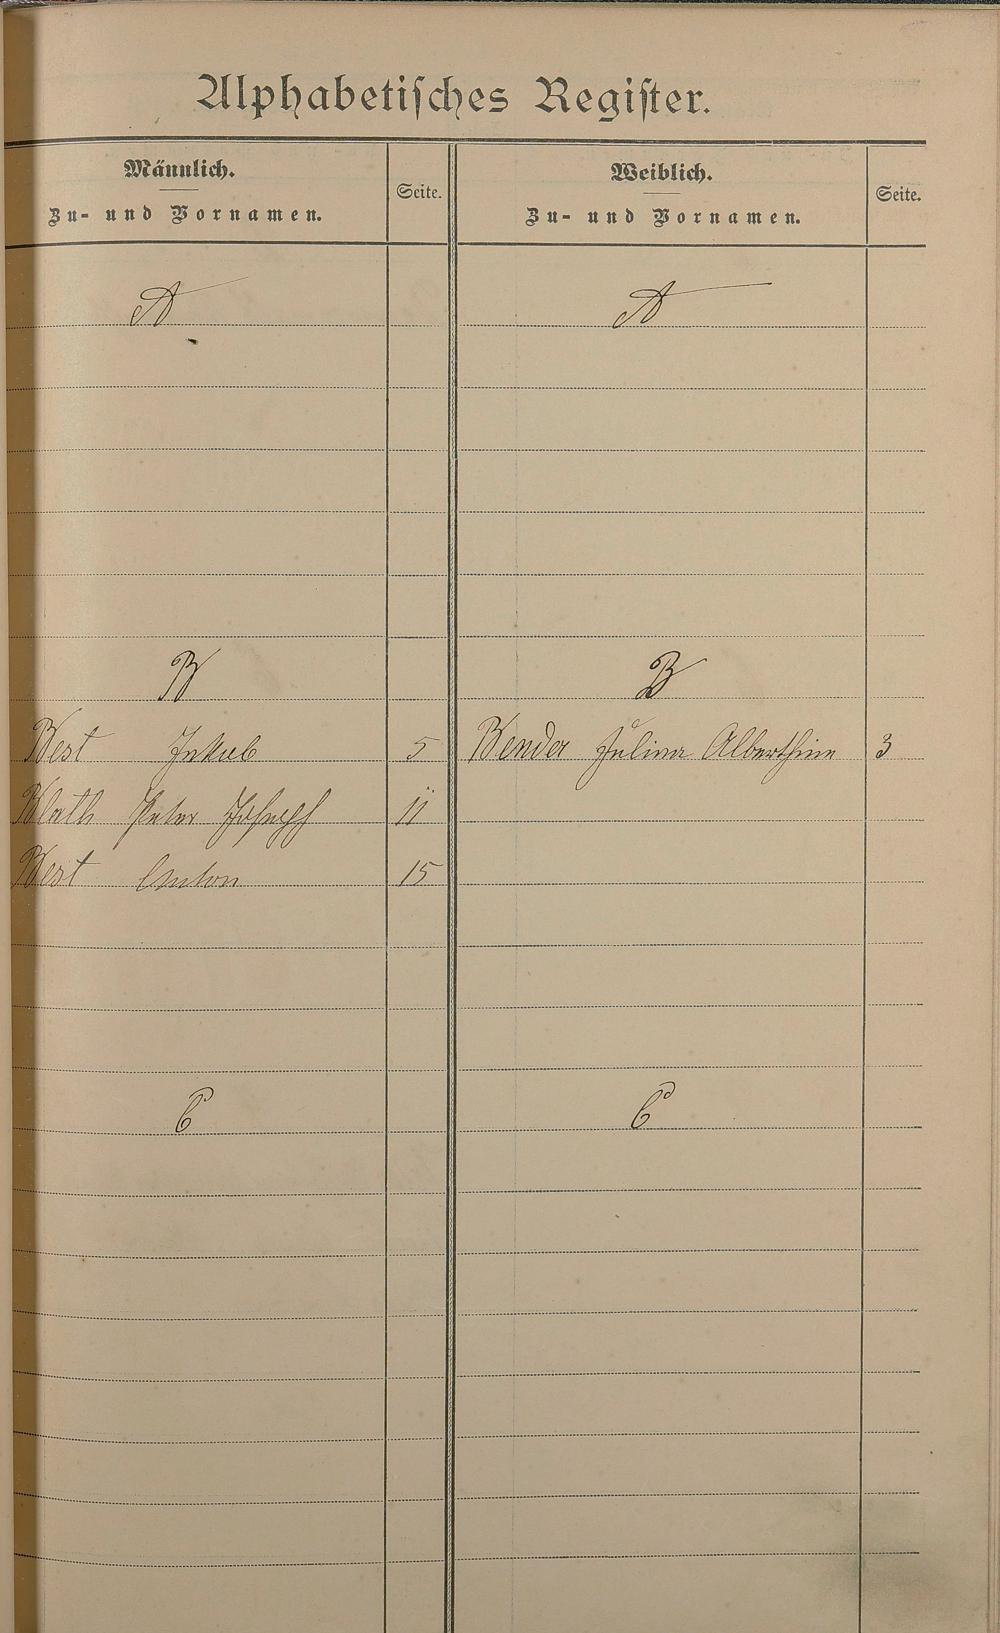 Alphabetisches Register.
Männlich.
Zu- und Vornamen.
Seite.
Weiblich.
Zu- und Vornamen.
Seite.
A
A
B
B
Best Jakob 5
Bender Juliana Alberthine 3
Blath Peter Joseph 11
Best Anton 15
C
C